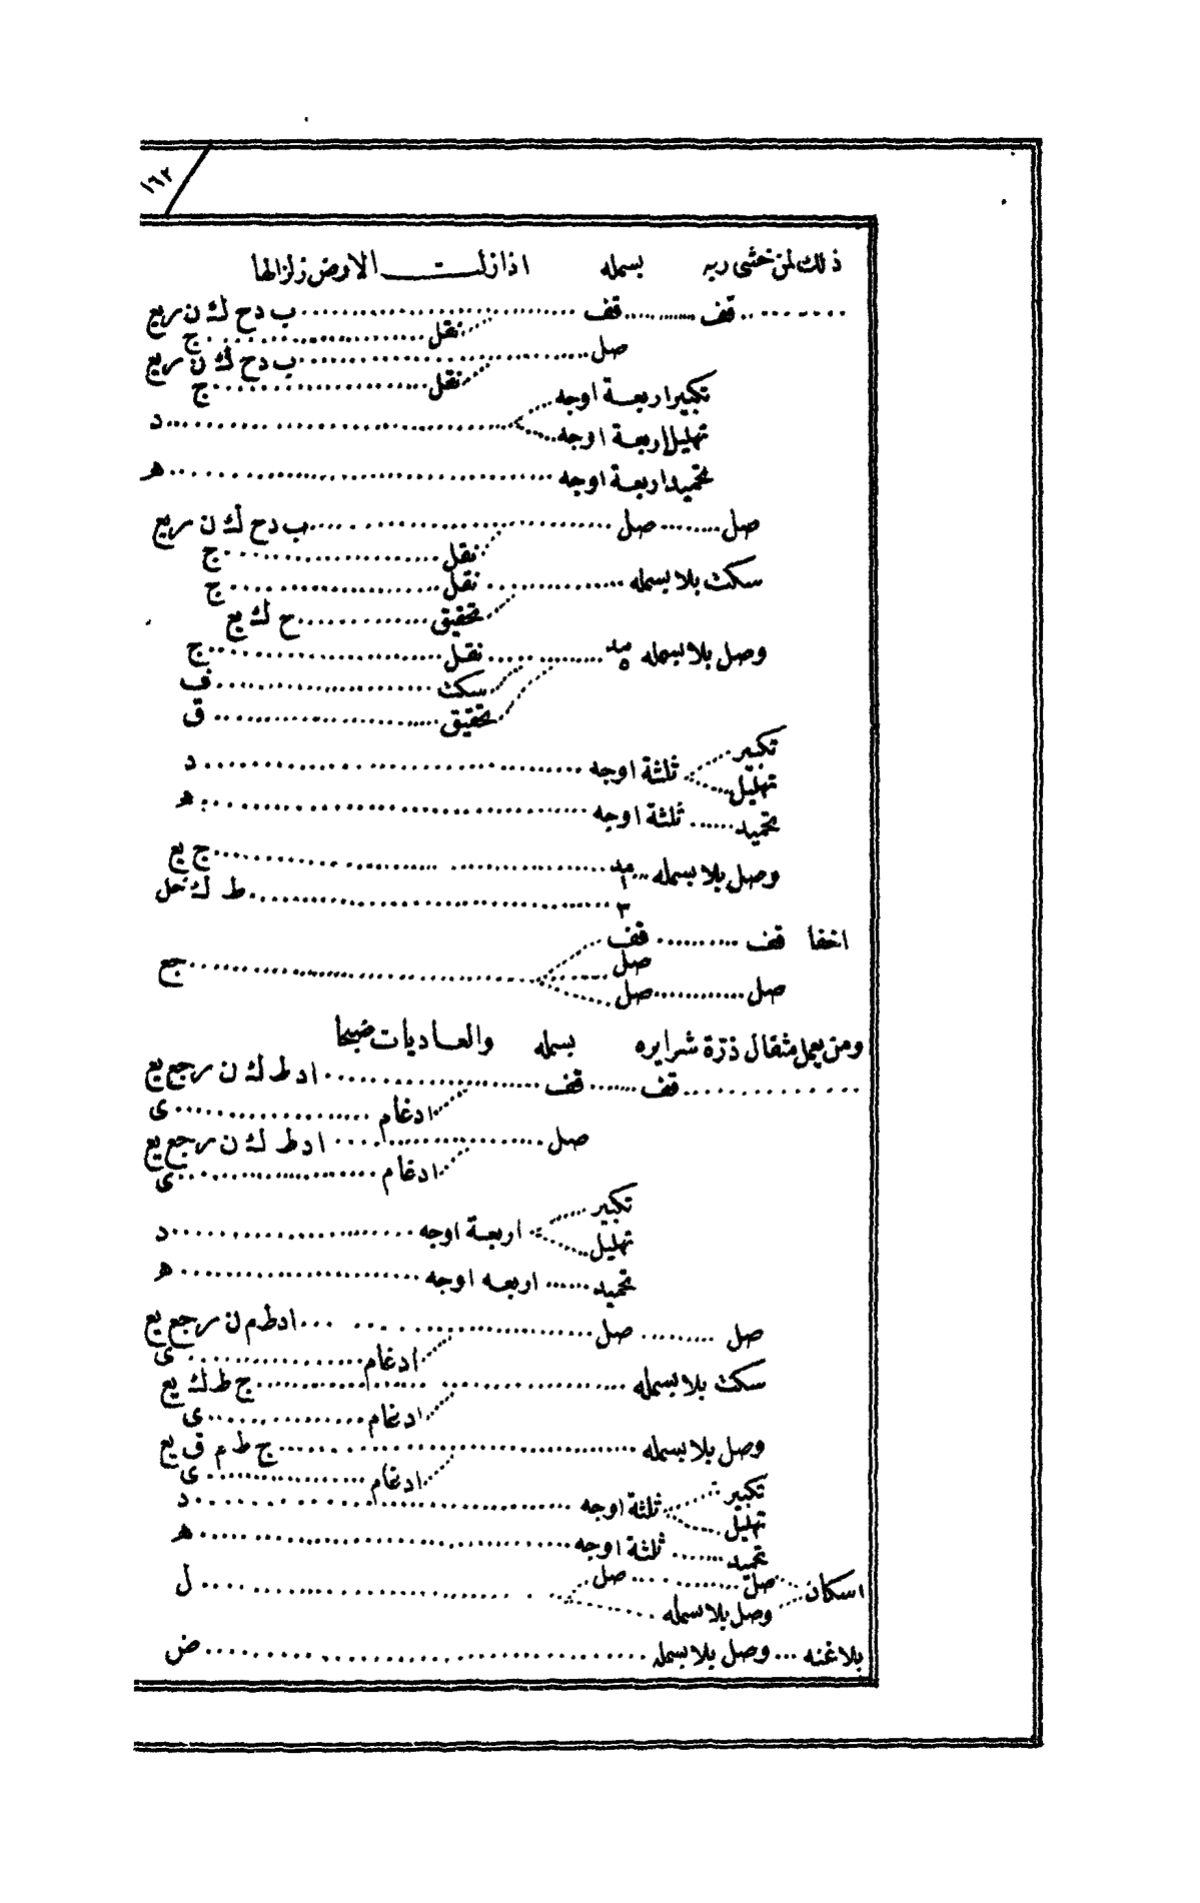 ١٦٢
ذلك لمن خشى ربه بسمله اذا زلـــت الارض زلزالها
قف قف ب د ح ك ن ر يع
نقل ج
صل ب د ح ك ن ر يع
نقل ج
تكبير اربعة اوجه
د
تهليل اربعة اوجه
تحميد اربعة اوجه ه
صل صل ب د ح ك ن ر يع
نقل ج
سكت بلا بسمله نقل ج
تحقيق ح ك يع
وصل بلا بسمله مد ٥ نقل ج
سكت ف
تحقيق ق
تكبير
ثلثة اوجه د
تهليل
تحميد ثلثة اوجه ه
وصل بلا بسمله مد ١ ج يع
٣ ط ك خل
اخفا قف قف
صل جع
صل صل
ومن يعمل مثقال ذرّة شرا يره بسمله والعاديات ضبحا
قف قف ا د ط ك ن ر جع يع
ادغام ى
صل ا د ط ك ن ر جع يع
ادغام ى
تكبير
اربعة اوجه د
تهليل
تحميد اربعه اوجه ه
صل صل ا د ط م ن ر جع يع
ادغام ى
سكت بلا بسمله ج ط ك يع
ادغام ى
وصل بلا بسمله ج ط م ق يع
ادغام ى
تكبير
ثلثة اوجه د
تهليل
تحميد ثلثة اوجه ه
اسكان صل صل ل
وصل بلا بسمله
بلا غنه وصل بلا بسمله ض